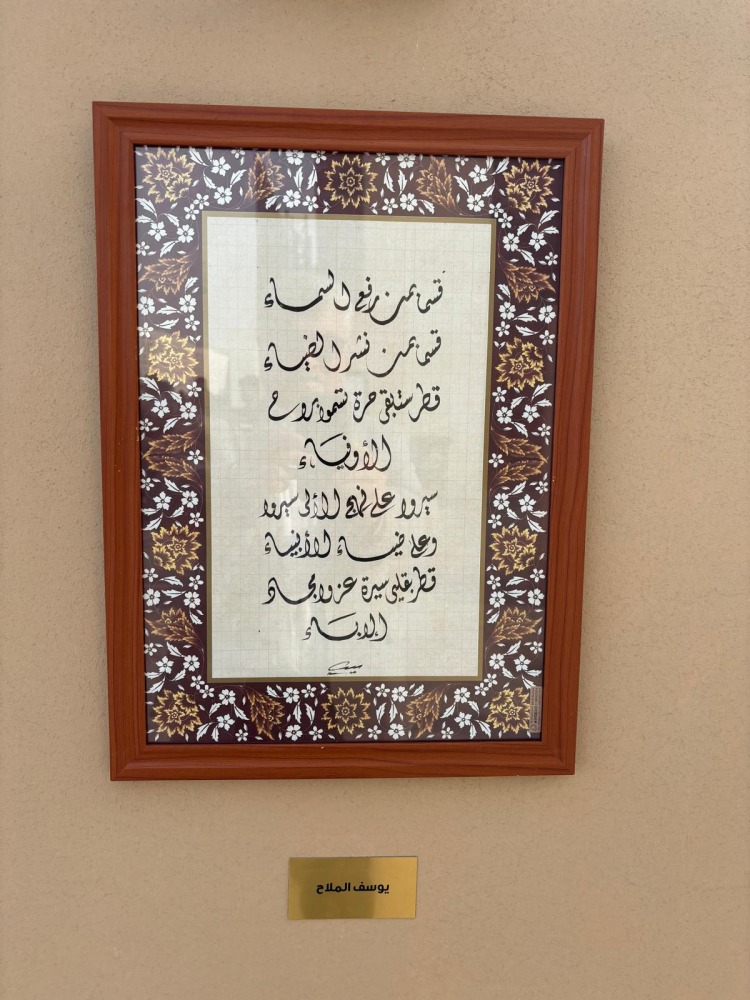 قسما بمن رفع السماء
قسما بمن نشر الضياء
قطر ستبقى حرة تسمو بروح
الأوفياء
سيروا على نهج الألى سيروا
وعلى ضياء الأنبياء
قطر بقلبي سيرة عز وأمجاد
الإباء
يوسف الملاح